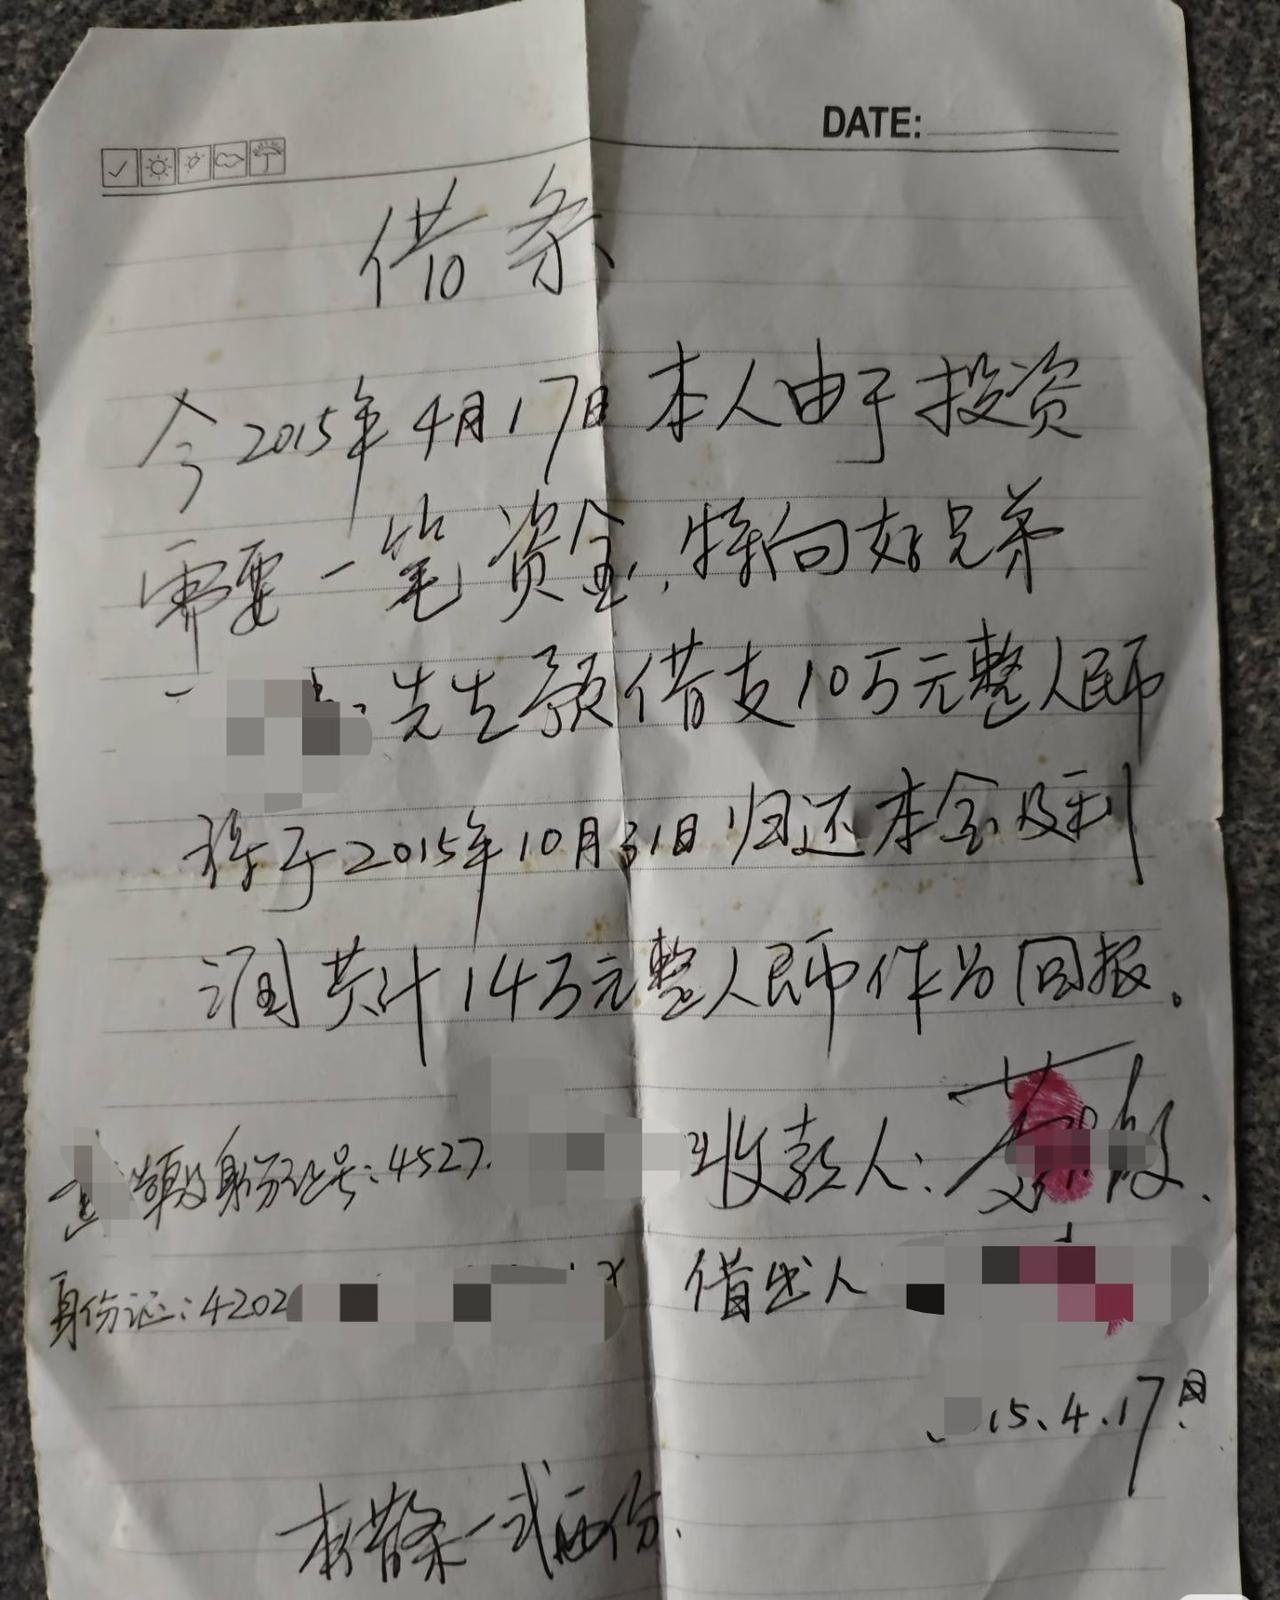 DATE:
借条
今2015年4月17日本人由于投资
需要一笔资金,特向好兄弟
先生预借支10万元整人民币
将于2015年10月31日归还本金及利
润共计14万元整人民币作为回报。
身份证号:4527 收款人:
身份证:4202 借出人
15.4.17日
本借条一式两份.